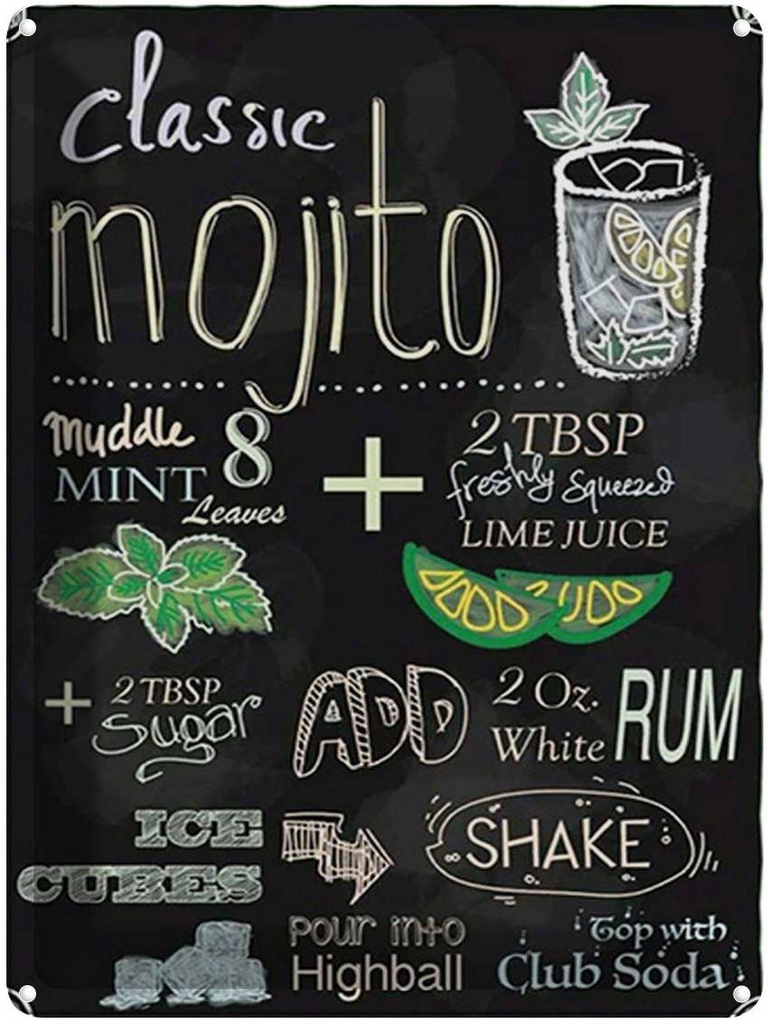 classic
mojito
Muddle 8
MINT
Leaves
+
2 TBSP
freshly squeezed
LIME JUICE
+ 2 TBSP
Sugar
ADD
2 Oz.
White RUM
ICE
CUBES
SHAKE
Pour into
Highball
Top with
Club Soda